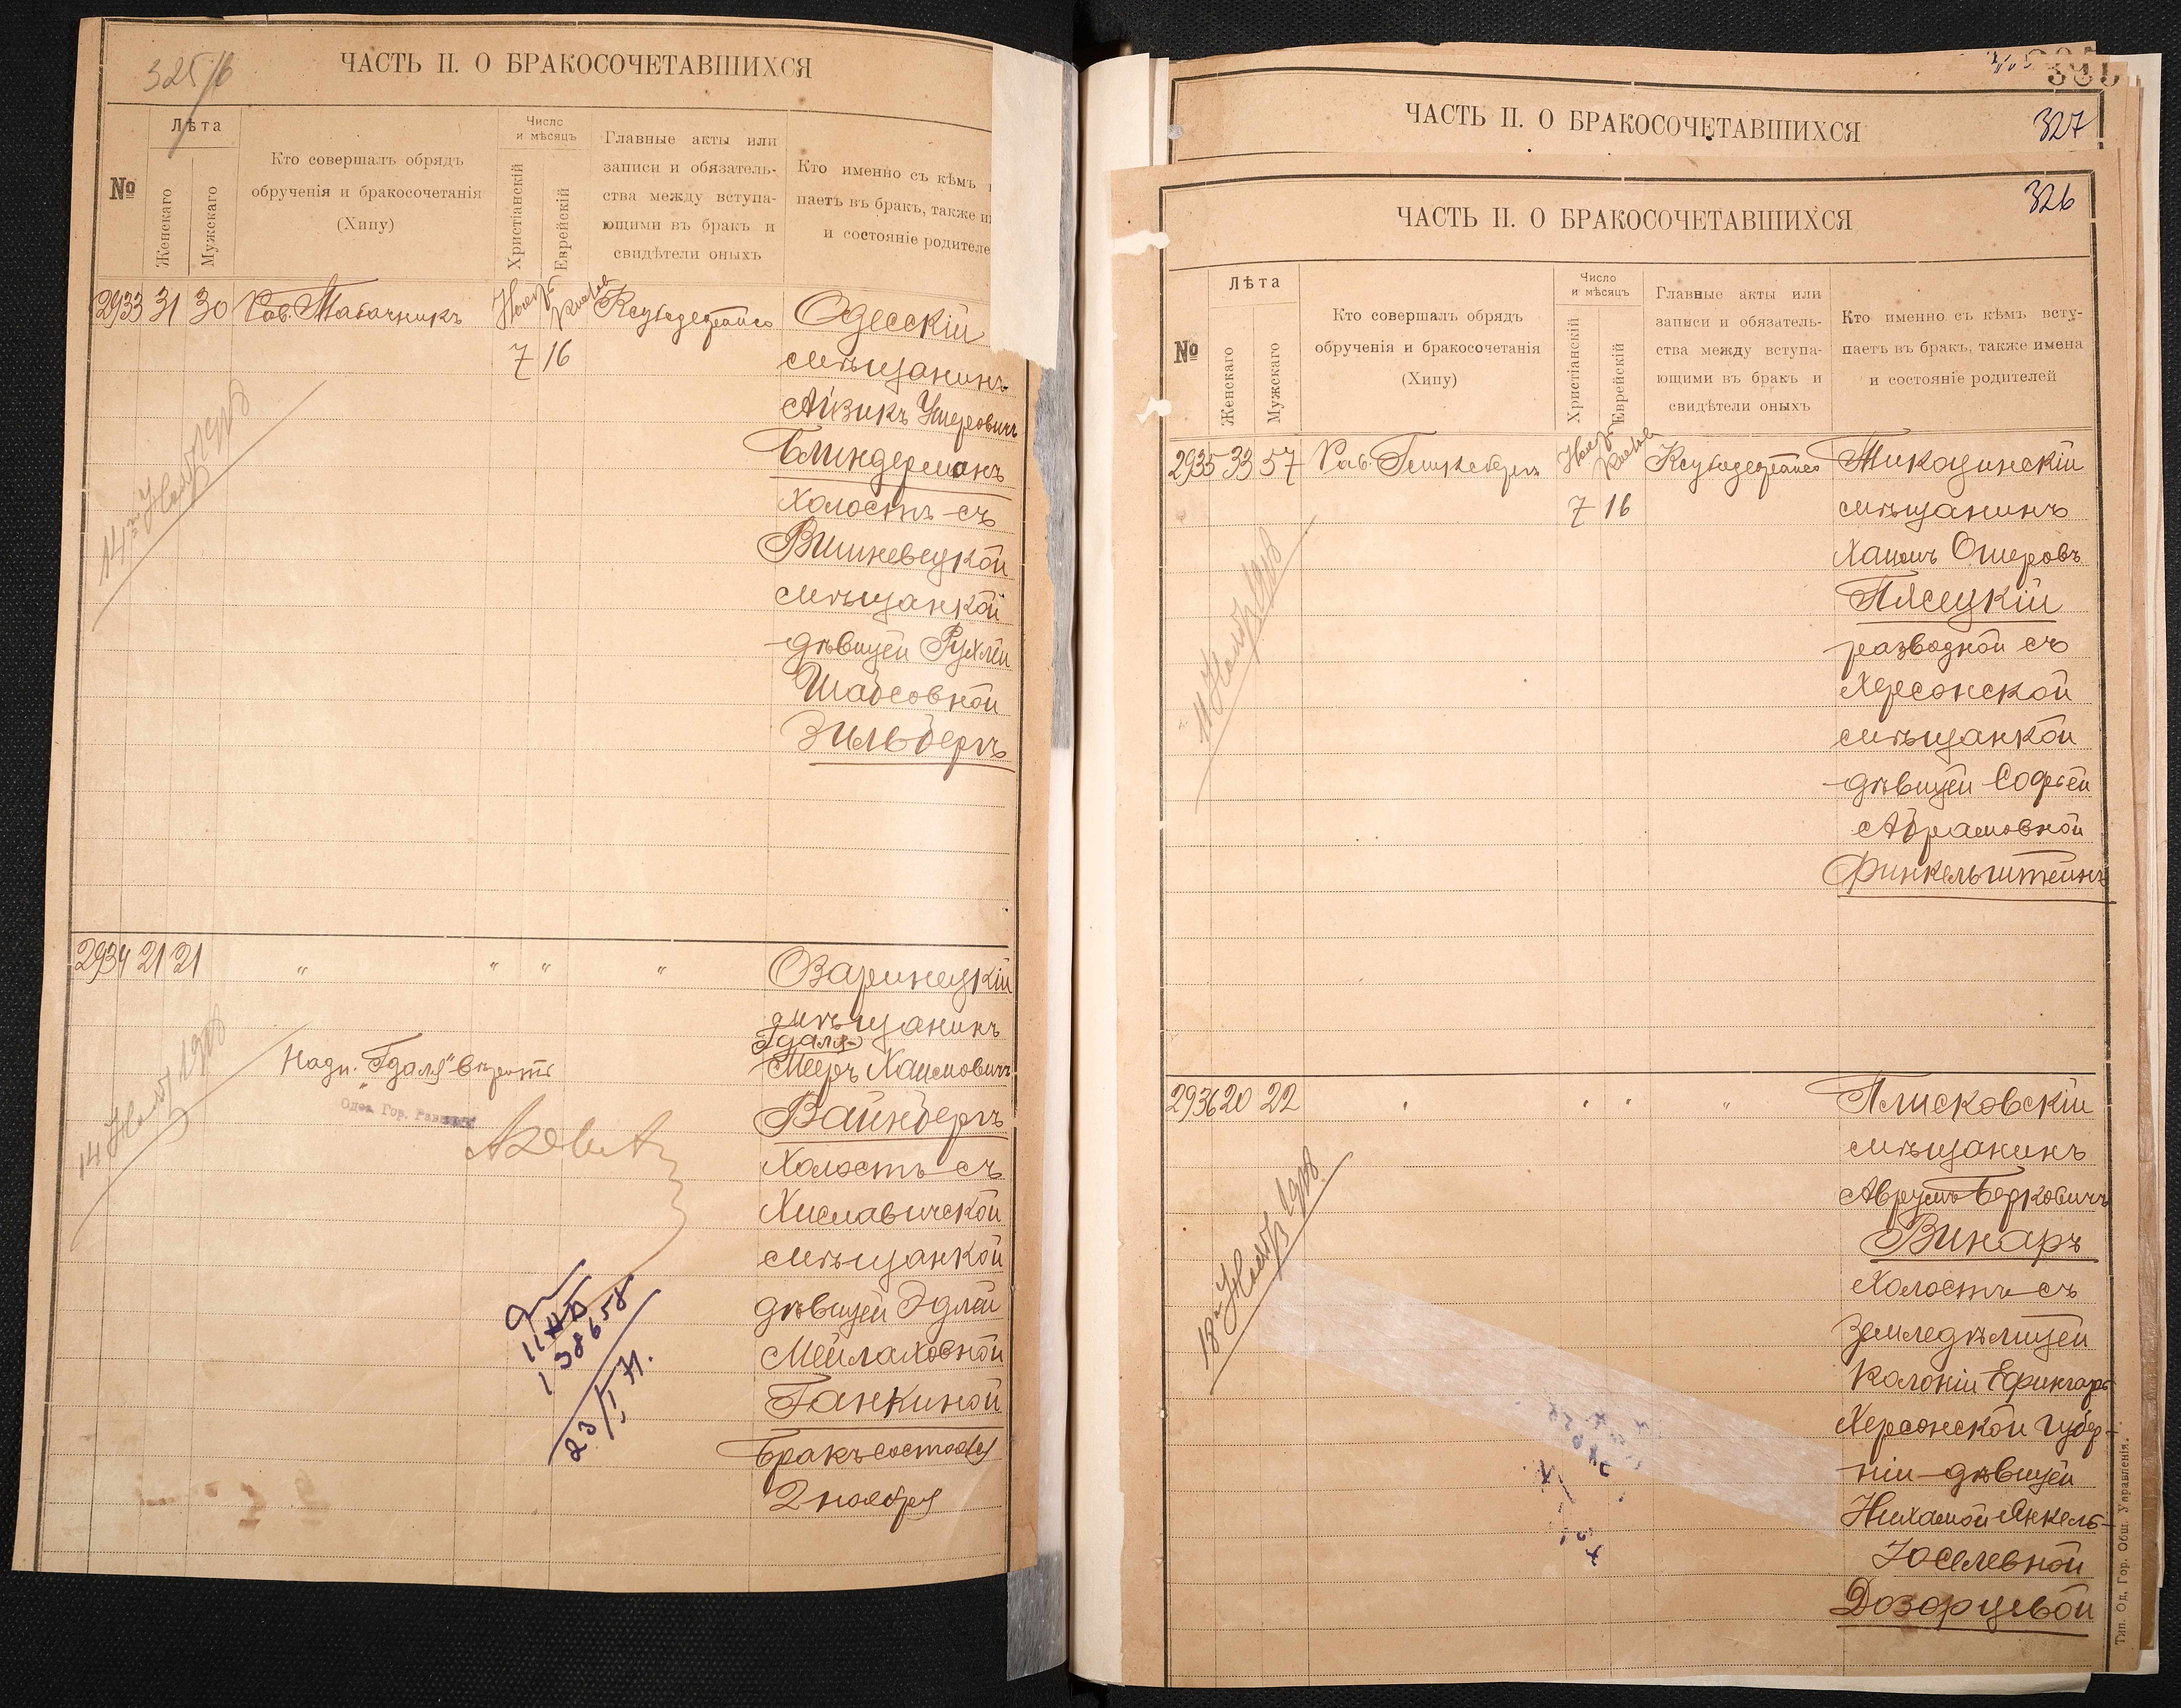 325/6
ЧАСТЬ II. О БРАКОСОЧЕТАВШИХСЯ
№
Лѣта
Женскаго
Мужскаго
Кто совершалъ обрядъ
обрученія и бракосочетанія
(Хипу)
Число
и мѣсяцъ
Христіанскій
Еврейскій
Главные акты или
записи и обязатель-
ства между вступа-
ющими въ бракъ и
свидѣтели оныхъ
Кто именно съ кѣмъ
паетъ въ бракъ, также и
и состояніе родителе
2933 31 30 Рав. Табачникъ
7 16
Одесскій
мѣщанинъ
Айзикъ Умеровичъ
Блиндерманъ
холостъ съ
Вишневецкой
мѣщанкой
дѣвицей Рухлей
Шабсовной
Зильбергъ
14 Нояб 1908
2934 21 21 " " " "
Озаринецкій
мѣщанинъ
Гдаля-
Мееръ Хаимовичъ
Вайнбергъ
Холостъ съ
Хиславичской
мѣщанкой
дѣвицей Эдлей
Мейлаховной
Ганкиной
Бракъ состоялся
2 ноября
Надп. "Гдаля" вѣрить
Одес. Гор. Раввинъ
14 Нояб 1908
138658
23/I 71.
ЧАСТЬ II. О БРАКОСОЧЕТАВШИХСЯ
327
326
ЧАСТЬ II. О БРАКОСОЧЕТАВШИХСЯ
№
Лѣта
Женскаго
Мужскаго
Кто совершалъ обрядъ
обрученія и бракосочетанія
(Хипу)
Число
и мѣсяцъ
Христіанскій
Еврейскій
Главные акты или
записи и обязатель-
ства между вступа-
ющими въ бракъ и
свидѣтели оныхъ
Кто именно съ кѣмъ всту-
паетъ въ бракъ, также имена
и состояніе родителей
2935 33 57 Рав.
7 16
Тикоцинскій
мѣщанинъ
Хаимъ Ошеровъ
Пясецкій
разводной съ
Херсонской
мѣщанкой
дѣвицей Софьей
Абрамовной
Финкельштейнъ
11 Нояб 1908
2936 20 22 " " " "
Плисковскій
мѣщанинъ
Аврумъ Берковичъ
Винаръ
Холостъ съ
Земледѣлицей
Колоніи Ефингаръ
Херсонской губер-
ніи дѣвицей
Нихамой Янкель-
Іоселевной
Дозорцевой
18 Нояб 1908
Тип. Од. Гор. Общ. Управленія.